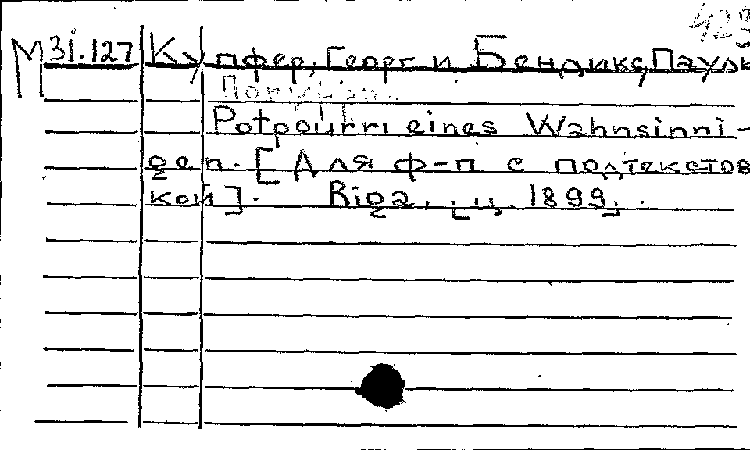 423
М 31.127 Купфер, Георг и Бендикс, Пауль
Попурри.
Potpourri eines Wahnsinni-
gen. [Для ф-п с подтекстов
кой]. Riga, [ц. 1899].